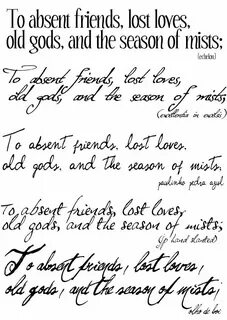 To absent friends, lost loves,
old gods, and the season of mists;
(echelon)
To absent friends, lost loves,
old gods, and the season of mists;
To absent friends. lost loves.
old gods. and the season of mists.
paulinho pedra azul
To absent friends, lost loves,
old gods, and the season of mists;
(jp hand slanted)
To absent friends, lost loves,
old gods, and the season of mists;
olho de boi